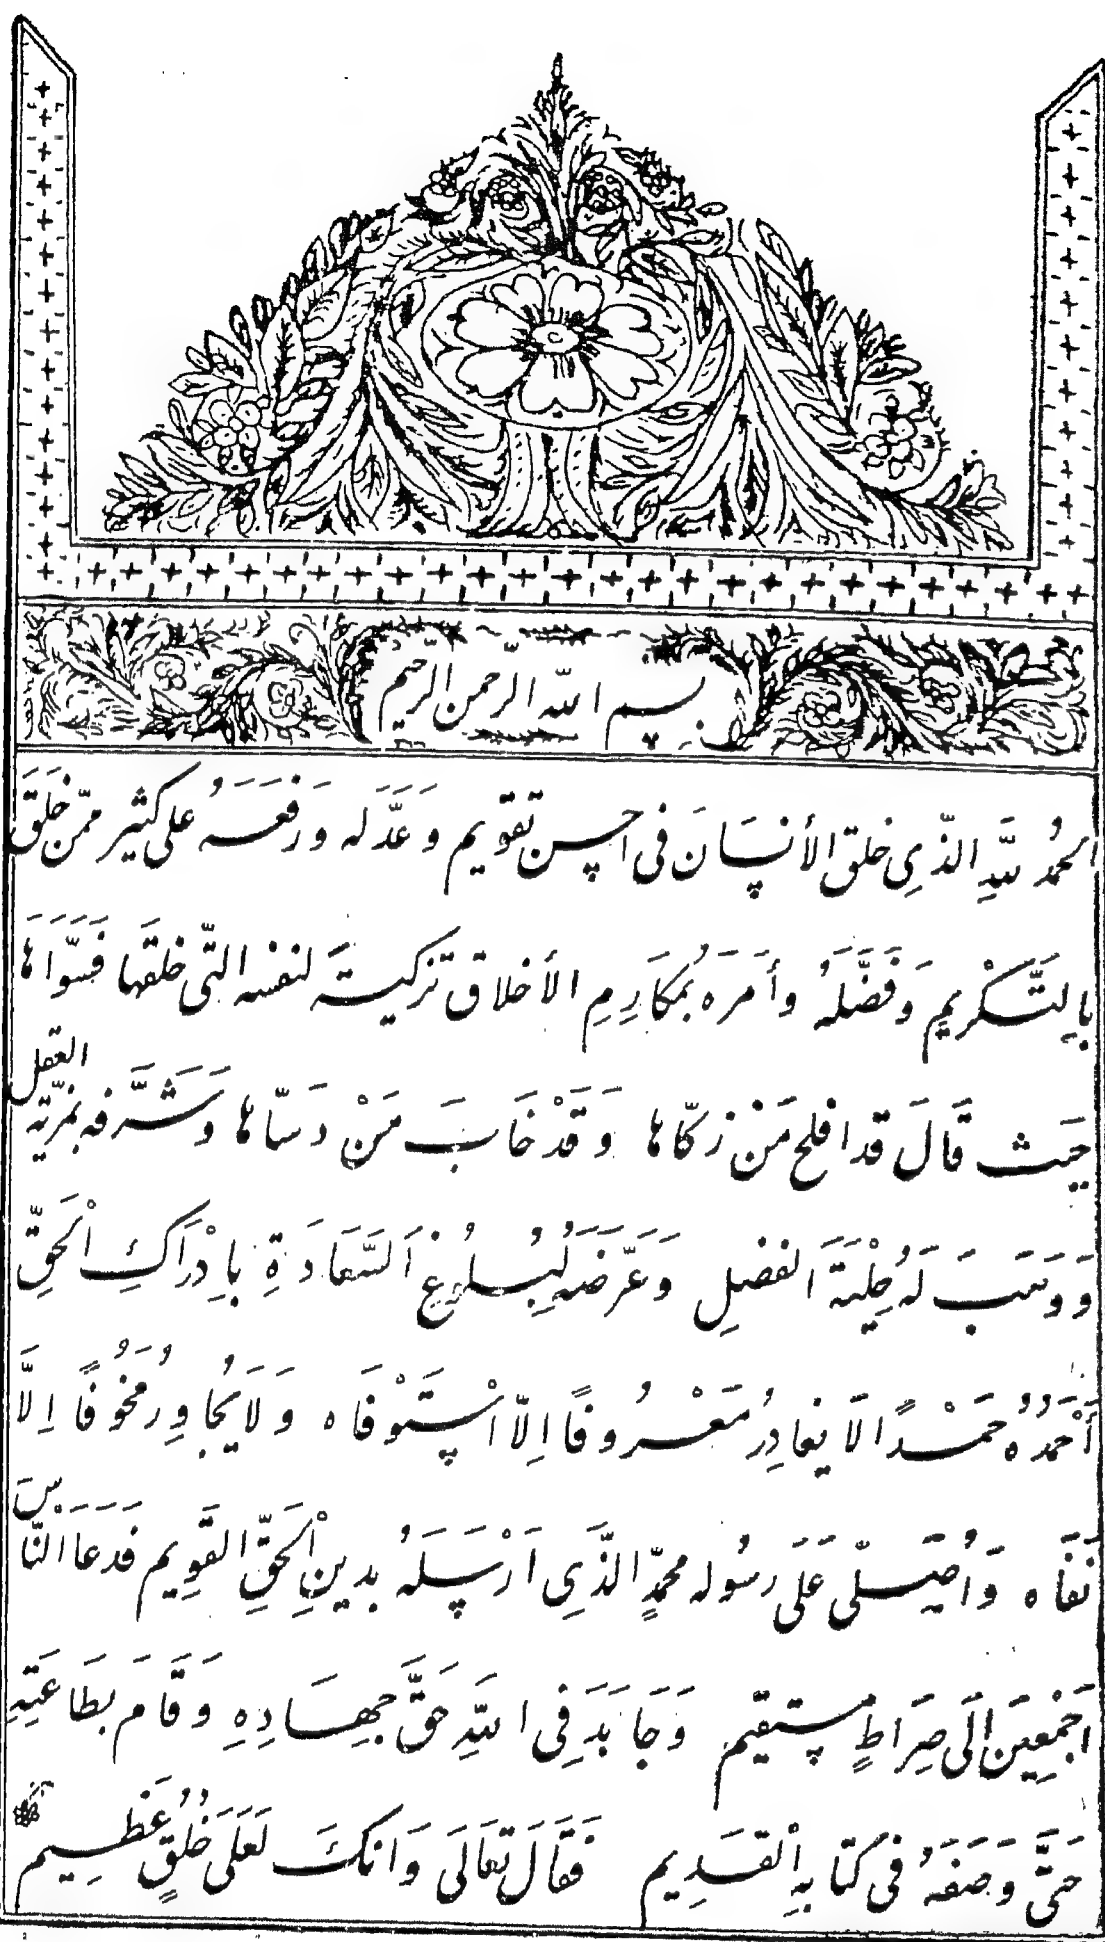 بسم الله الرحمن الرحيم
الحمدُ للهِ الذّي خلق الأنسَانَ في احسن تقويم وَ عَدَّله وَرفعَهُ على كثير ممّن خلَقَ
بِالتّكْريمِ وَفَضَّلهُ وأمَره بمكَارِمِ الأخلاق تزكيةً لنفسه التّى خلقَها فسَوّاهَا
حَيث قَالَ قد افلح مَنْ زكّاها وَقَدْ خَابَ مَنْ دَسّاها وَشَرَّفه بمَزيّة العقل
وَوَهَبَ لَهُ حِلْيَةَ الفضلِ وَعَرَّضَه لِبُلوُغِ السَّعَادَةِ بِادْرَاكِ الْحَقِّ
أَحْمَدُهُ حَمْداً لَا يغادِرُ مَعْرُوفًا اِلّا اسْتَوْفَاه وَلَا يُجاوِرُ مَخُوْفًا اِلَّا
نَفَاه وَاُصَلّى عَلَى رسُوله محمّدٍ الذّى اَرْسَلهُ بدينِ الْحَقِّ القَوِيم فَدَعَا النّاسَ
اَجْمَعِينَ اِلَى صِرَاطٍ مستقيم وَجَاهَدَ فِى اللهِ حَقَّ جِهَادِهِ وَقَامَ بطَاعَتِهِ
حَتَّى وَصَفهُ فى كتَابهِ الْقَدِيم فَقَالَ تعَالَى وَانكَ لَعَلَى خُلُقٍ عَظِيم